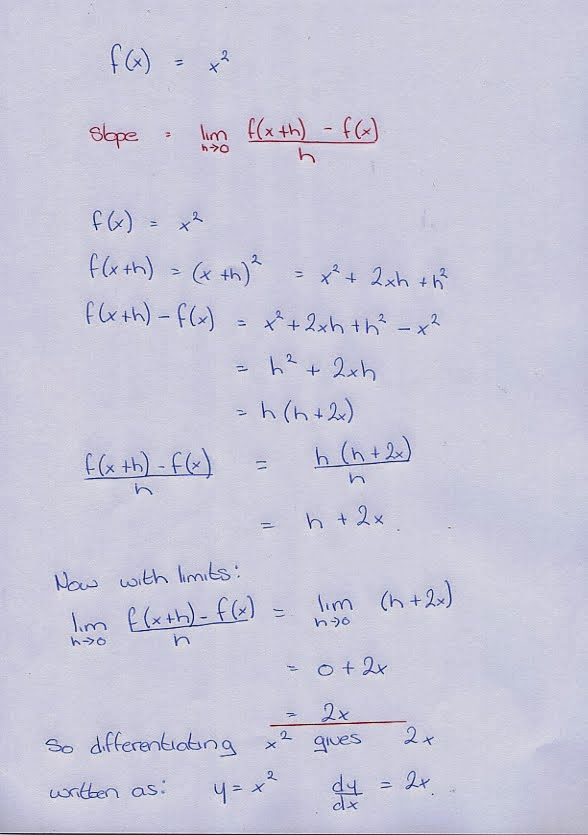 f(x) = x²
Slope = lim h→0 f(x+h) - f(x) / h
f(x) = x²
f(x+h) = (x+h)² = x² + 2xh + h²
f(x+h) - f(x) = x² + 2xh + h² - x²
= h² + 2xh
= h (h + 2x)
f(x+h) - f(x) / h = h (h + 2x) / h
= h + 2x.
Now with limits:
lim h→0 f(x+h) - f(x) / h = lim h→0 (h + 2x)
= 0 + 2x
= 2x
So differentiating x² gives 2x
written as: y = x² dy/dx = 2x.